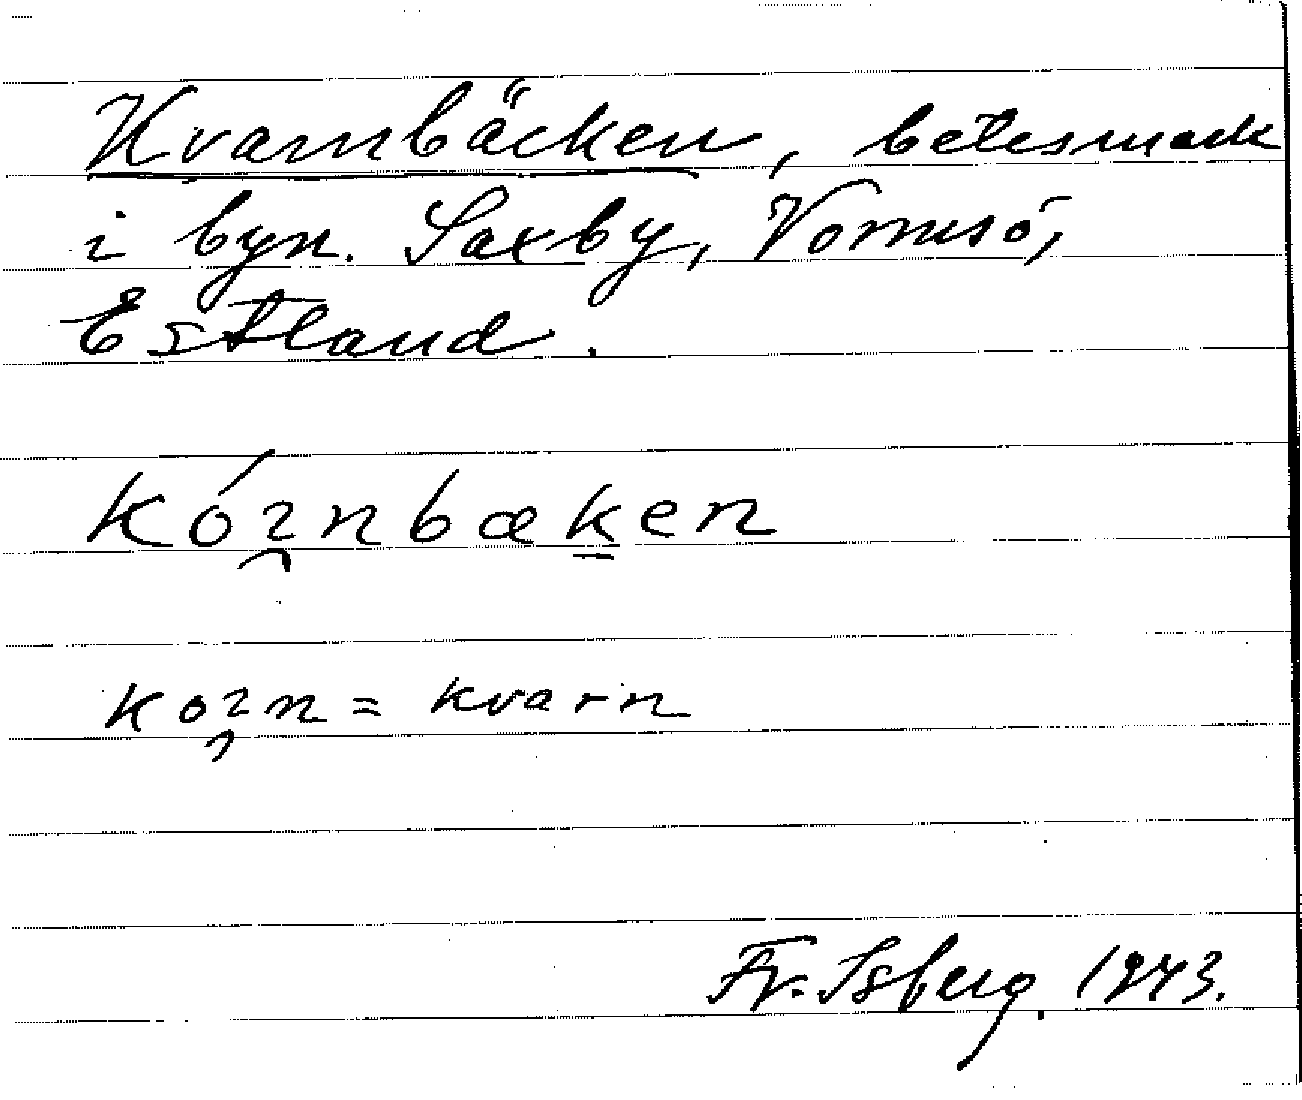 Kvarnbäcken, betesmark
i byn. Saxby, Vormsö,
Estland.
kórnbæken
korn = kvarn
Fr. Isberg. 1943.